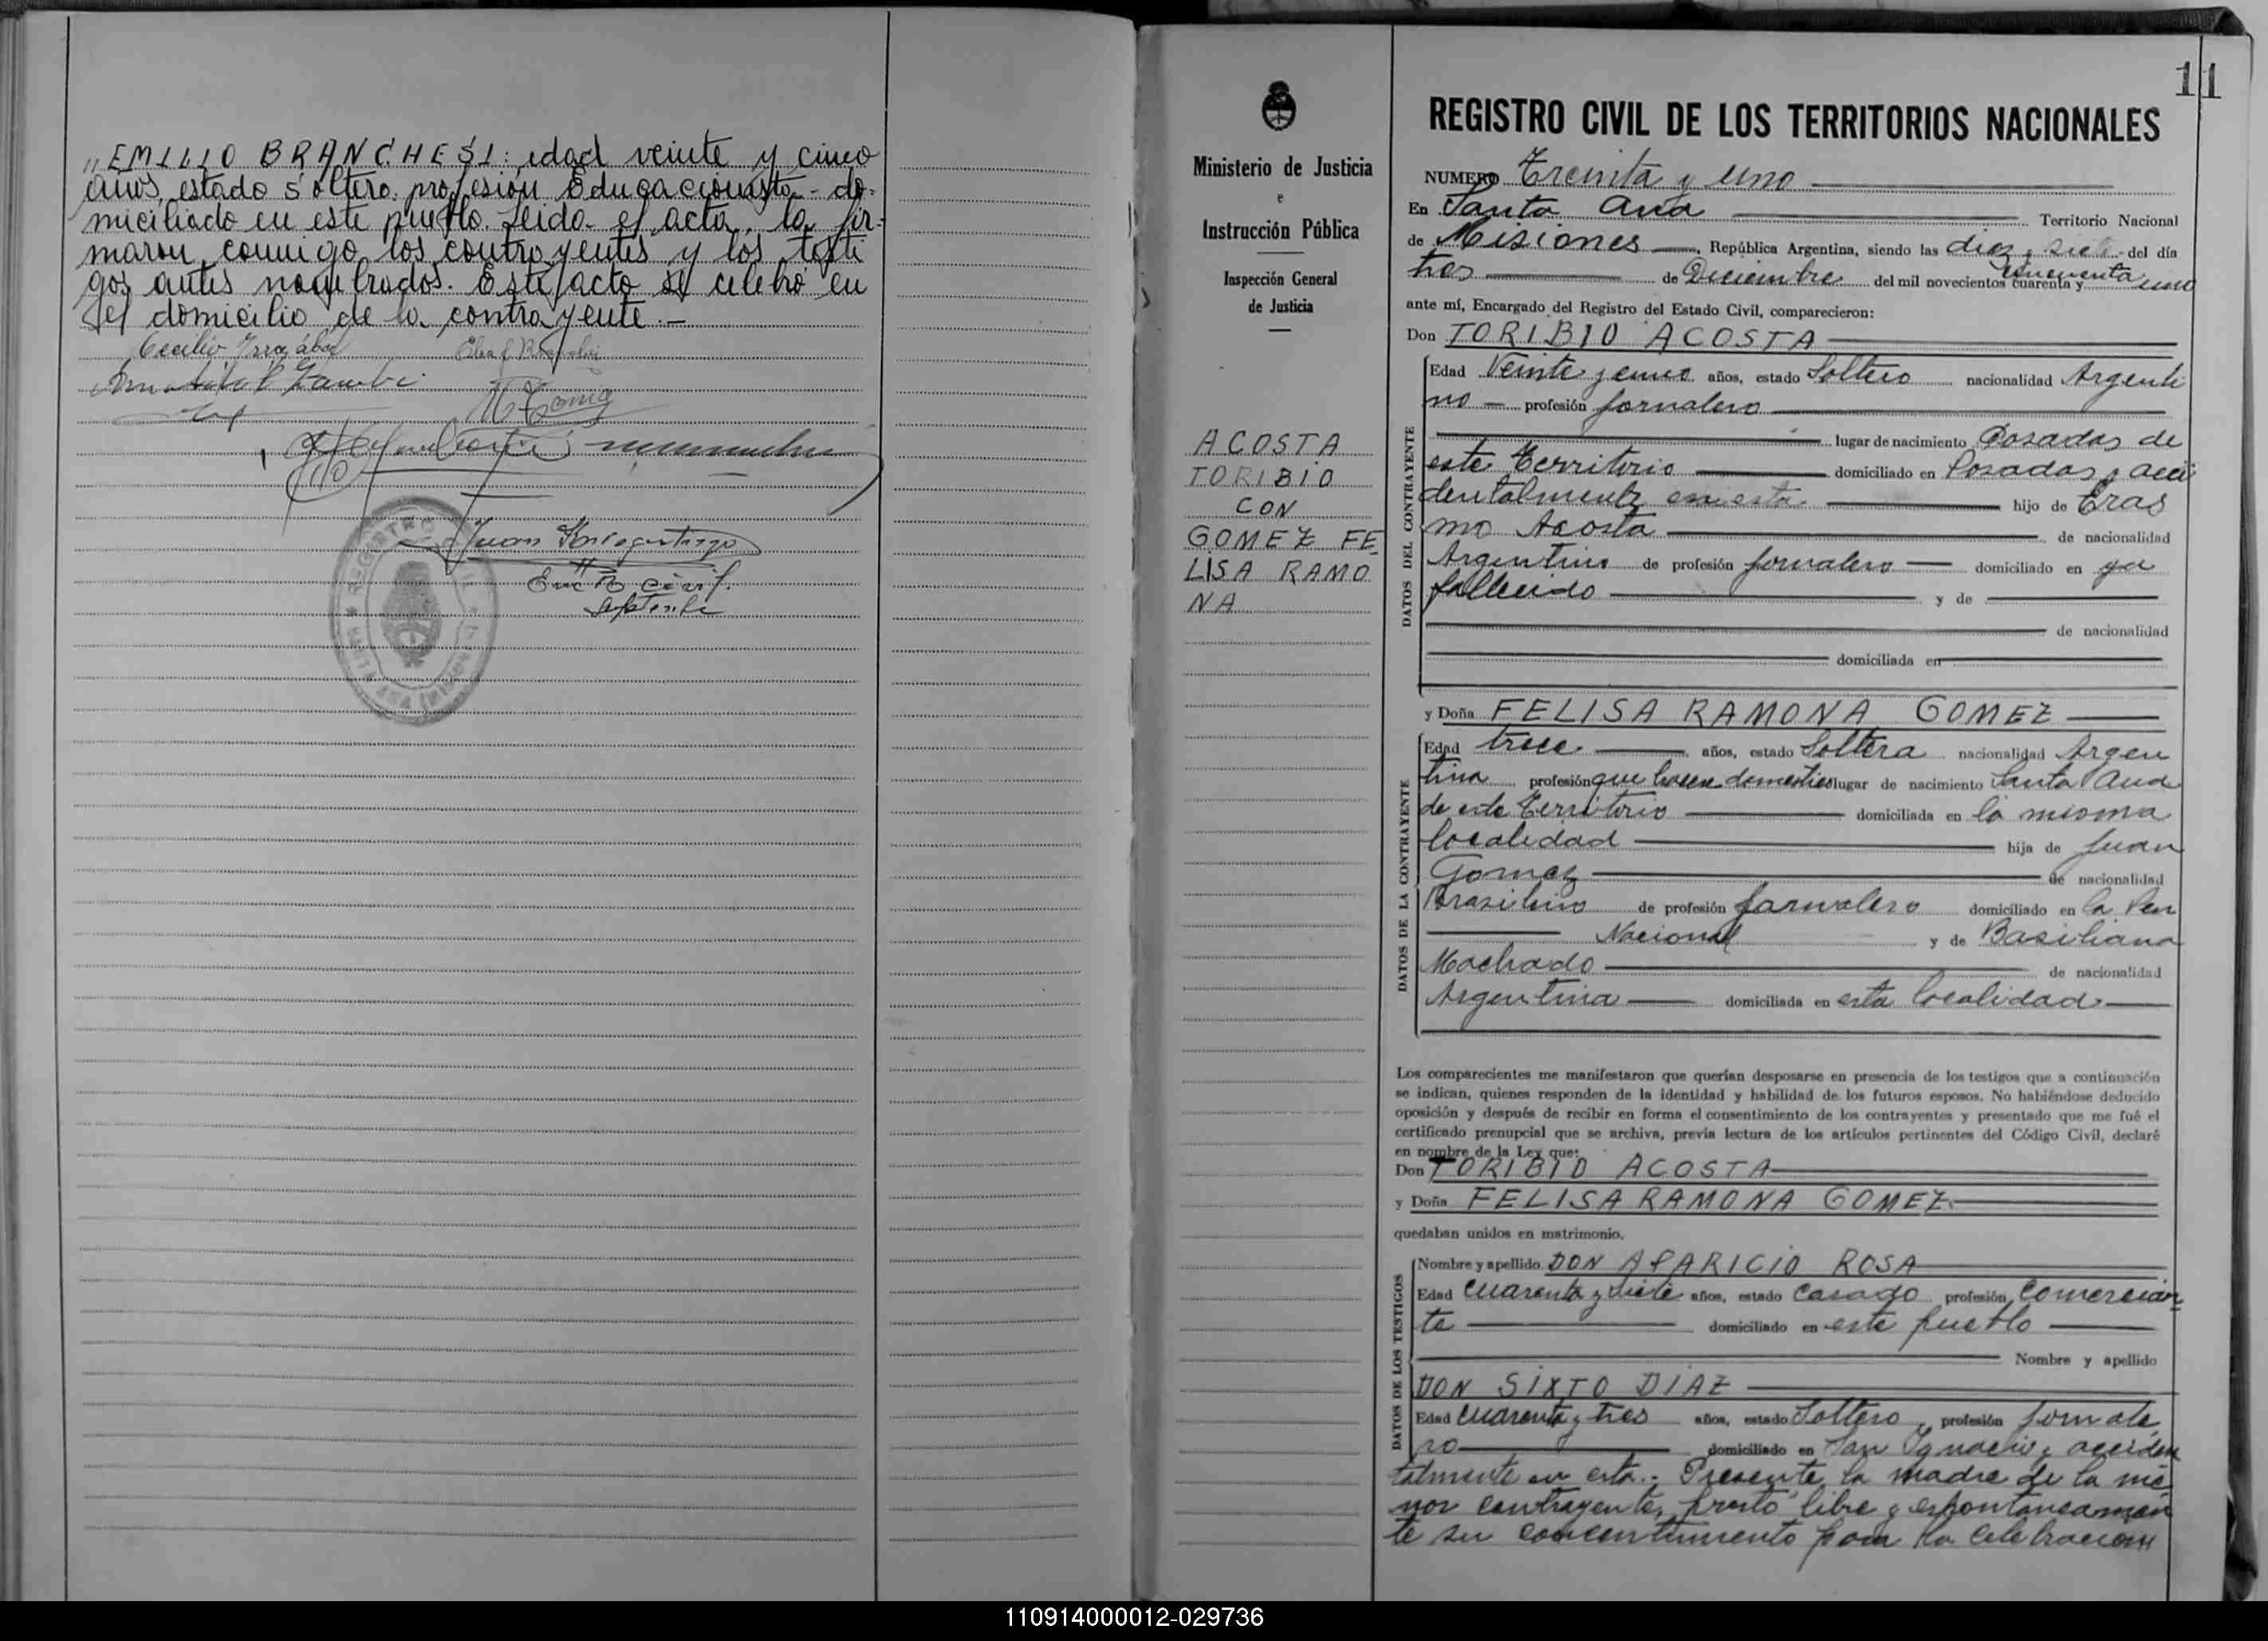 „EMILIO BRANCHESI: edad veinte y cinco
años, estado soltero, profesión Educacionista - do-
miciliado en este pueblo. Leida el acta, la fir-
maron conmigo los contrayentes y los testi
gos antes nombrados. Este acto se celebró en
el domicilio de la contrayente.-
Cecilio Irrazábal
Juan
Enc R civil
REGISTRO CIVIL
11
Ministerio de Justicia
e
Instrucción Pública
Inspección General
de Justicia
ACOSTA
TORIBIO
CON
GOMEZ FE
LISA RAMO
NA
REGISTRO CIVIL DE LOS TERRITORIOS NACIONALES
NUMERO Treinta y uno
En Santa Ana Territorio Nacional
de Misiones, República Argentina, siendo las diez y siete del día
tres de Diciembre del mil novecientos cuarenta y cincuenta uno
ante mí, Encargado del Registro del Estado Civil, comparecieron:
Don TORIBIO ACOSTA
DATOS DEL CONTRAYENTE
Edad Veinte y años, estado Soltero nacionalidad Argenti
no profesión jornalero
lugar de nacimiento Posadas de
este Territorio domiciliado en Posadas y acci
dentalmente en esta hijo de Eras
mo Acosta de nacionalidad
Argentino de profesión jornalero domiciliado en ya
fallecido y de
de nacionalidad
domiciliada en
y Doña FELISA RAMONA GOMEZ
DATOS DE LA CONTRAYENTE
Edad trece años, estado Soltera nacionalidad Argen
tina profesión que lugar de nacimiento Santa Ana
de este Territorio domiciliada en la misma
localidad hija de Juan
Gomez de nacionalidad
Brasilero de profesión jornalero domiciliado en la Pen
Nacional y de Basiliana
Machado de nacionalidad
Argentina domiciliada en esta localidad
Los comparecientes me manifestaron que querían desposarse en presencia de los testigos que a continuación
se indican, quienes responden de la identidad y habilidad de los futuros esposos. No habiéndose deducido
oposición y después de recibir en forma el consentimiento de los contrayentes y presentado que me fué el
certificado prenupcial que se archiva, previa lectura de los artículos pertinentes del Código Civil, declaré
en nombre de la Ley que:
Don TORIBIO ACOSTA
y Doña FELISA RAMONA GOMEZ
quedaban unidos en matrimonio.
DATOS DE LOS TESTIGOS
Nombre y apellido DON APARICIO ROSA
Edad Cuarenta y siete años, estado Casado profesión Comercian
te domiciliado en este pueblo
Nombre y apellido
DON SIXTO DIAZ
Edad Cuarenta y tres años, estado Soltero, profesión jornale
ro domiciliado en San Ignacio y acciden
talmente en esta.- Presente la madre de la me
nor contrayente, prestó libre y espontaneamen
te su concentimiento para la celebracion
110914000012-029736